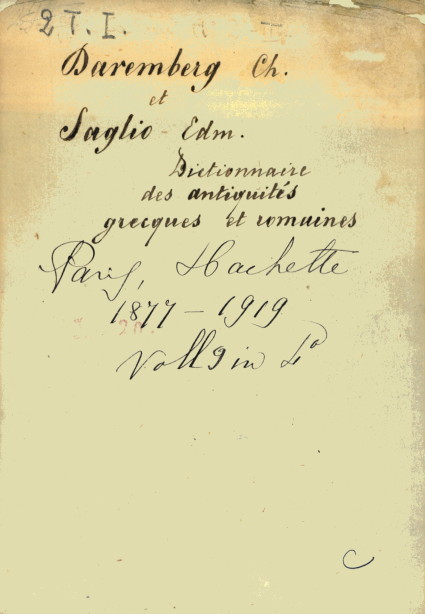 2 T. I.
Daremberg Ch.
et
Saglio Edm.
Dictionnaire
des antiquités
grecques et romaines
Paris, Hachette
1877 – 1919
Voll 9 in 4°
C